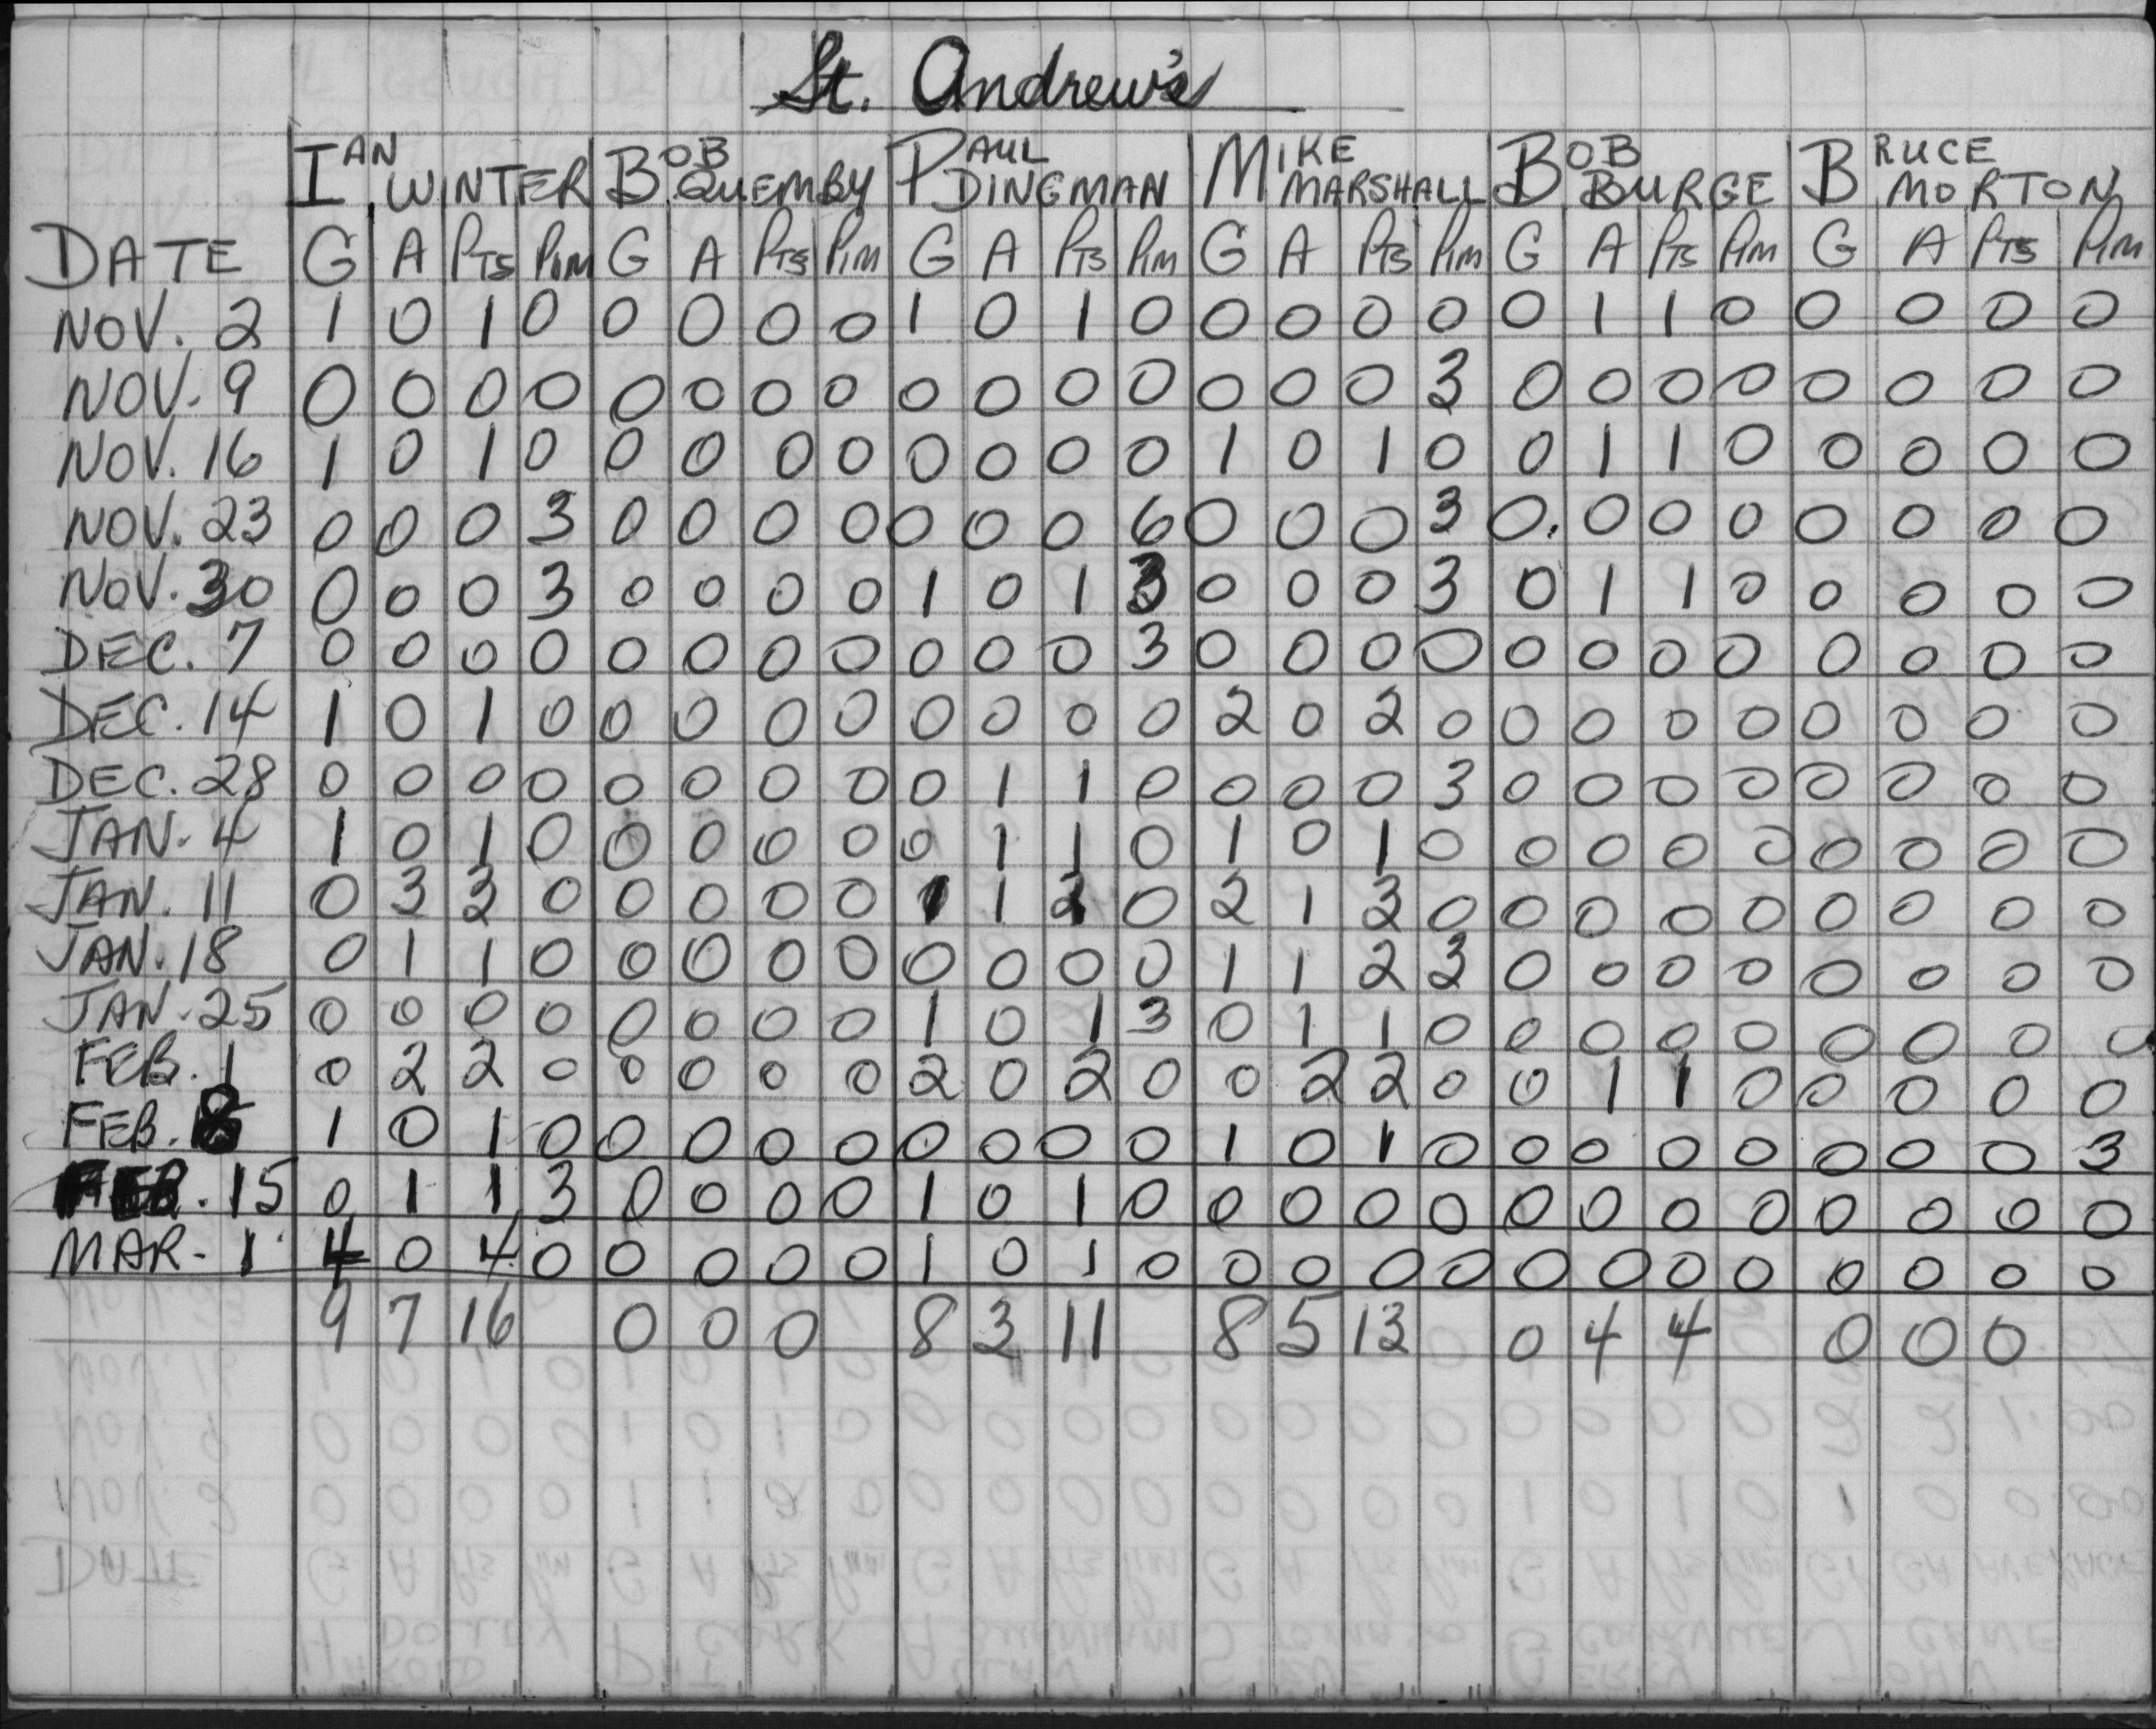 St. Andrew's
IAN WINTER BOB QUEMBY PAUL DINGMAN MIKE MARSHALL BOB BURGE BRUCE MORTON
DATE G A PTS PIM G A PTS PIM G A PTS PIM G A PTS PIM G A PTS PIM G A PTS PIM
NOV. 2 1 0 1 0 0 0 0 0 1 0 1 0 0 0 0 0 0 1 1 0 0 0 0 0
NOV. 9 0 0 0 0 0 0 0 0 0 0 0 0 0 0 0 3 0 0 0 0 0 0 0 0
NOV. 16 1 0 1 0 0 0 0 0 0 0 0 0 1 0 1 0 0 1 1 0 0 0 0 0
NOV. 23 0 0 0 3 0 0 0 0 0 0 0 6 0 0 0 3 0. 0 0 0 0 0 0 0
NOV. 30 0 0 0 3 0 0 0 0 1 0 1 3 0 0 0 3 0 1 1 0 0 0 0 0
DEC. 7 0 0 0 0 0 0 0 0 0 0 0 3 0 0 0 0 0 0 0 0 0 0 0 0
DEC. 14 1 0 1 0 0 0 0 0 0 0 0 0 2 0 2 0 0 0 0 0 0 0 0 0
DEC. 28 0 0 0 0 0 0 0 0 0 1 1 0 0 0 0 3 0 0 0 0 0 0 0 0
JAN. 4 1 0 1 0 0 0 0 0 0 1 1 0 1 0 1 0 0 0 0 0 0 0 0 0
JAN. 11 0 3 3 0 0 0 0 0 1 1 2 0 2 1 3 0 0 0 0 0 0 0 0 0
JAN. 18 0 1 1 0 0 0 0 0 0 0 0 0 1 1 2 3 0 0 0 0 0 0 0 0
JAN. 25 0 0 0 0 0 0 0 0 1 0 1 3 0 1 1 0 0 0 0 0 0 0 0 0
FEB. 1 0 2 2 0 0 0 0 0 2 0 2 0 0 2 2 0 0 1 1 0 0 0 0 0
FEB. 8 1 0 1 0 0 0 0 0 0 0 0 0 1 0 1 0 0 0 0 0 0 0 0 3
FEB. 15 0 1 1 3 0 0 0 0 1 0 1 0 0 0 0 0 0 0 0 0 0 0 0 0
MAR. 1 4 0 4 0 0 0 0 0 1 0 1 0 0 0 0 0 0 0 0 0 0 0 0 0
9 7 16 0 0 0 8 3 11 8 5 13 0 4 4 0 0 0